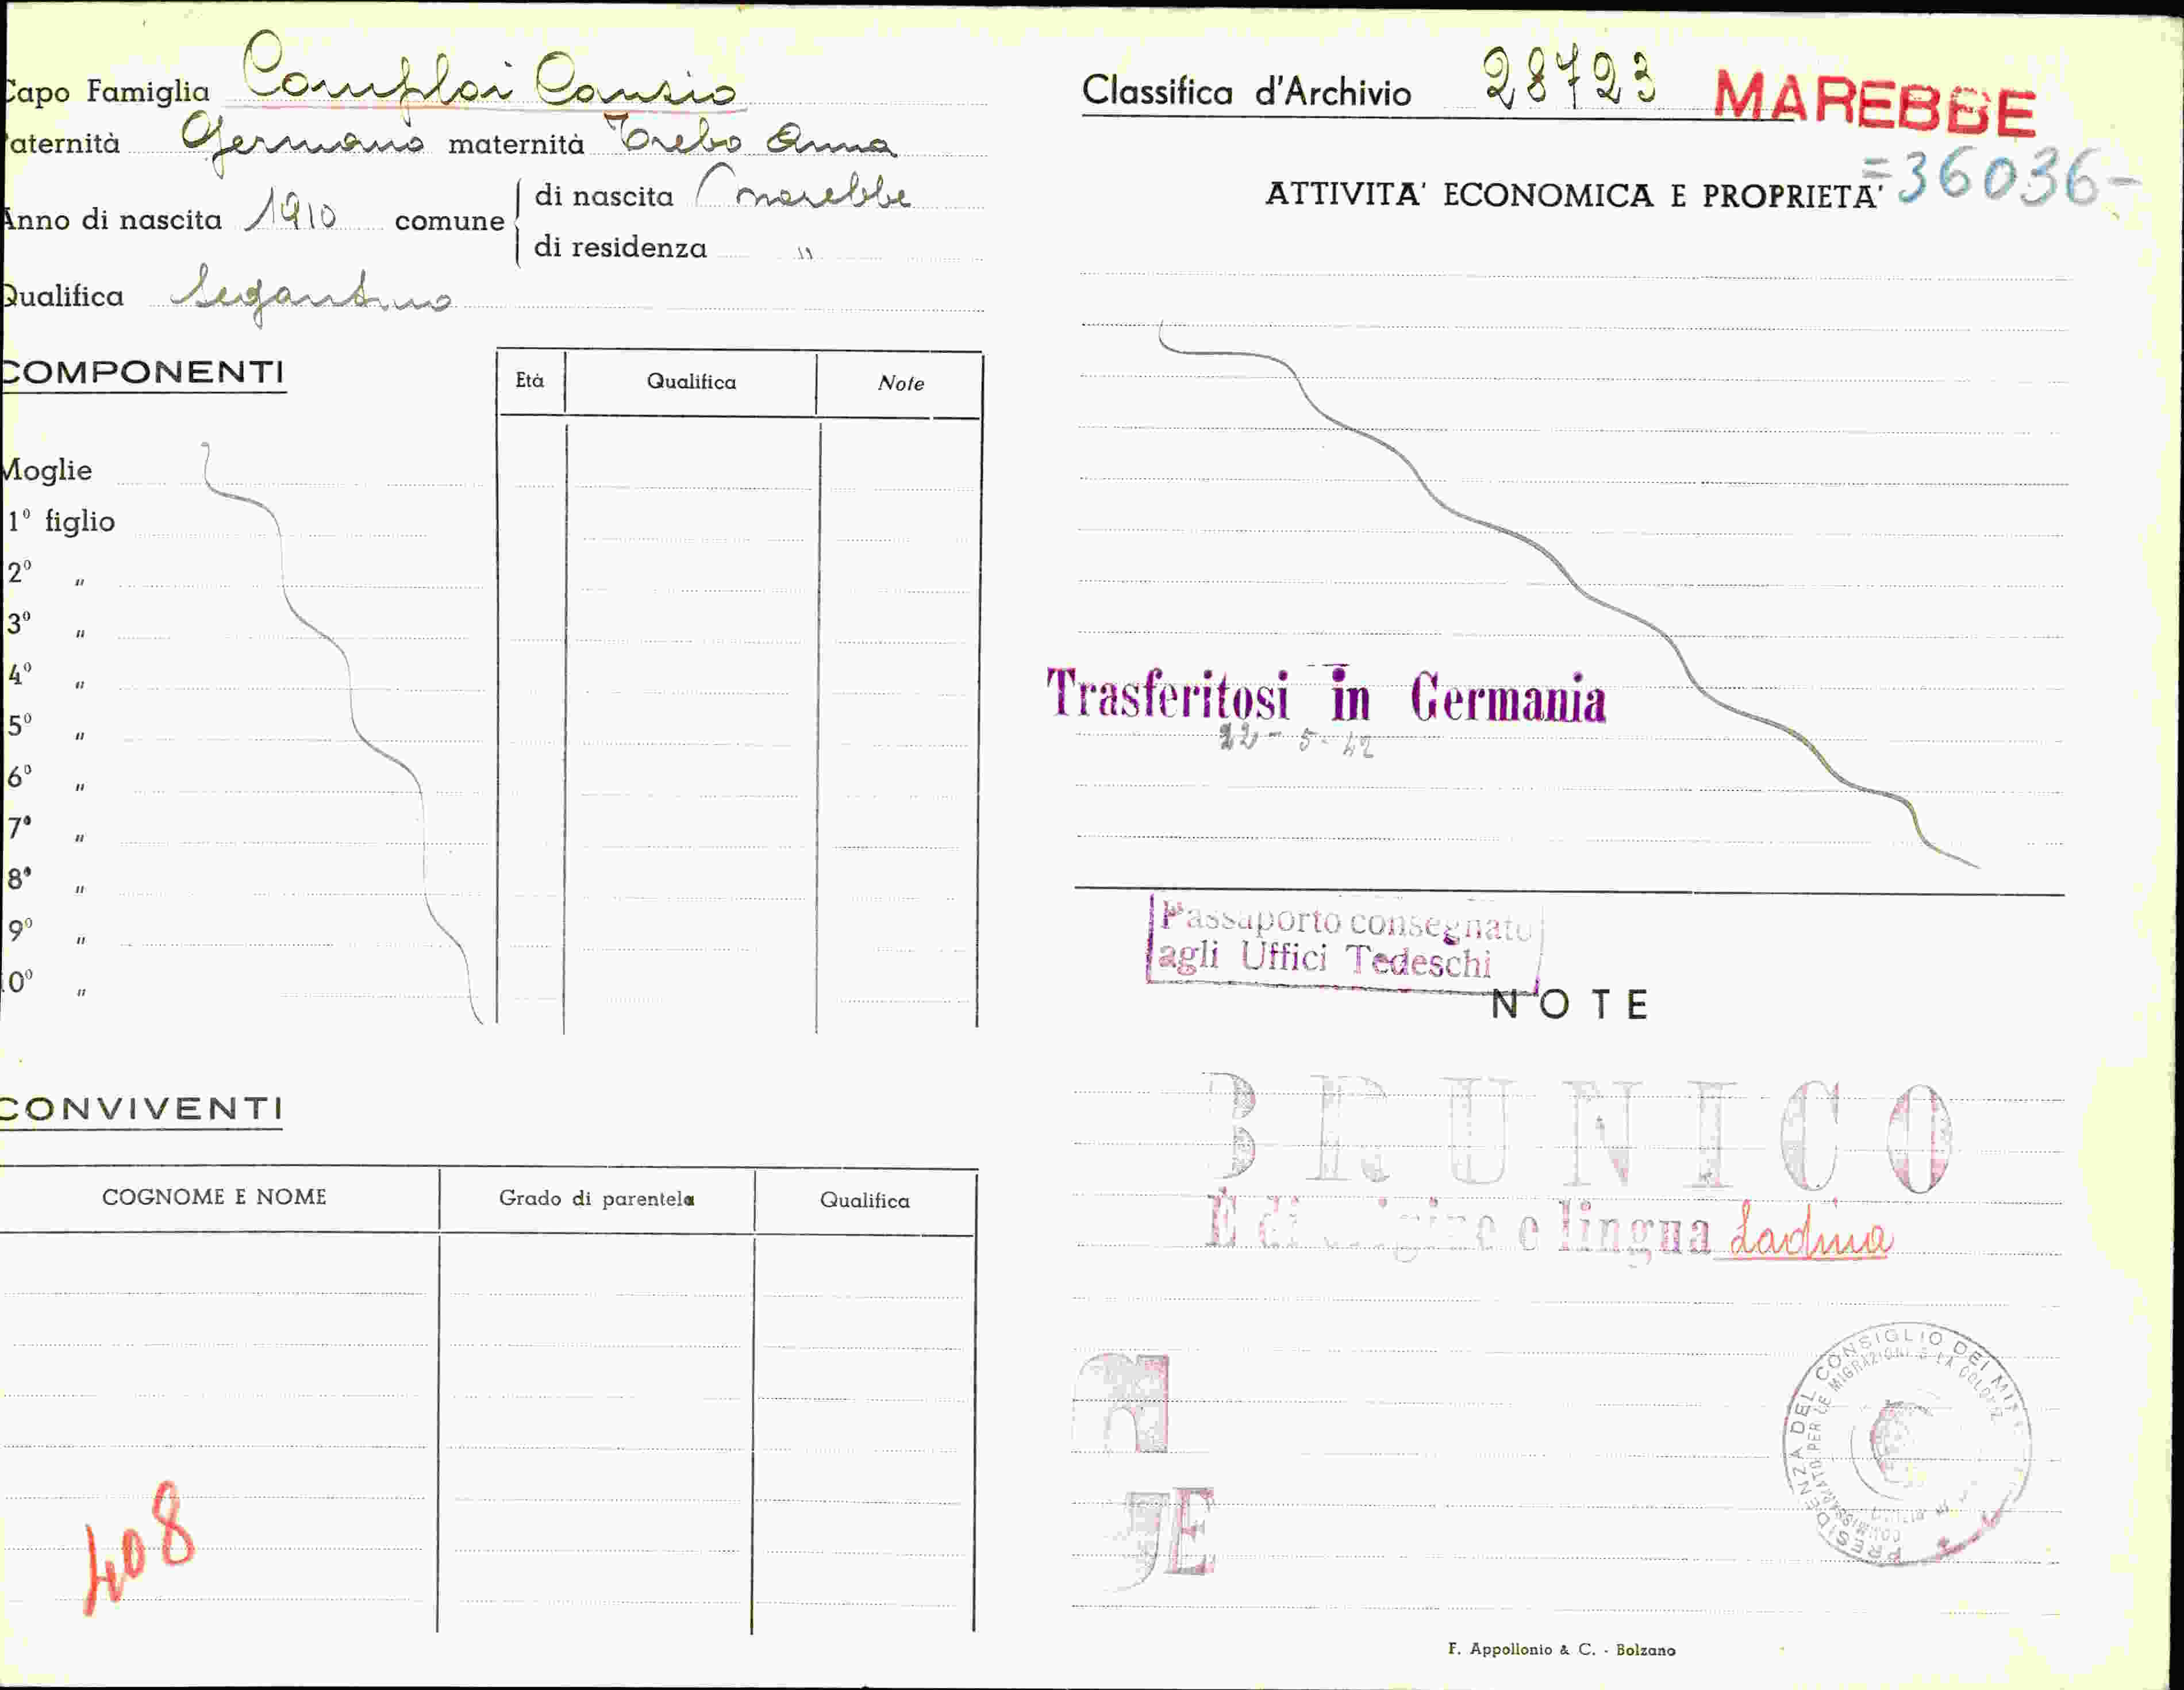 Capo Famiglia Comploi Canzio
aternità Germano maternità Trebo Anna
Anno di nascita 1910 comune di nascita Marebbe
di residenza "
Qualifica Segantino
COMPONENTI
Età Qualifica Note
Moglie
1º figlio
2º "
3º "
4º "
5º "
6º "
7º "
8º "
9º "
0º "
CONVIVENTI
COGNOME E NOME Grado di parentela Qualifica
408
Classifica d'Archivio 28723 MAREBBE
=36036-
ATTIVITA' ECONOMICA E PROPRIETA'
Trasferitosi in Germania
22-5-42
Passaporto consegnato
agli Uffici Tedeschi
NOTE
BRUNICO
È di origine e lingua Ladina
PRESIDENZA DEL CONSIGLIO DEI MI
COMMISSARIATO PER LE MIGRAZIONI E LA COLON
F. Appollonio & C. - Bolzano